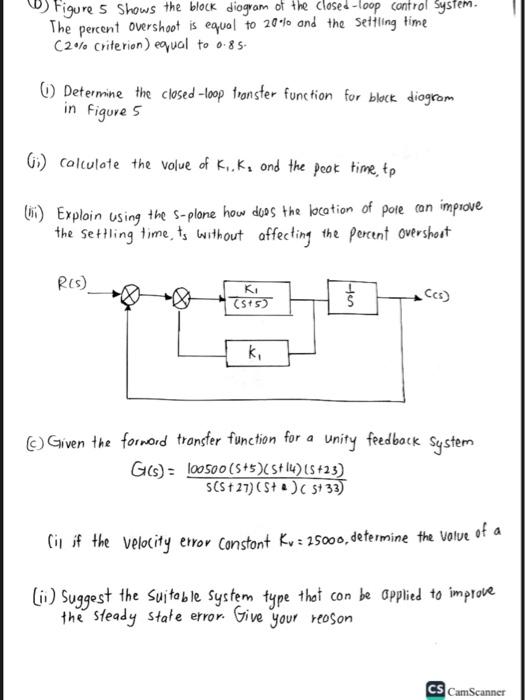 b) Figure 5 shows the block diagram of the closed-loop control system.
The percent overshoot is equal to 20% and the settling time
(2% criterion) equal to 0.8s.
(i) Determine the closed-loop transfer function for block diagram
in Figure 5
(ii) Calculate the value of K₁, K₂ and the peak time, tp
(iii) Explain using the s-plane how does the location of pole can improve
the settling time, ts without affecting the percent overshoot
R(s)
K₁
(s+5)
1
S
C(s)
K₁
(c) Given the forward transfer function for a unity feedback system
G(s) = 100500(s+5)(s+14)(s+23)
s(s+27)(s+a)(s+33)
(i) if the velocity error constant Kv = 25000, determine the value of a
(ii) Suggest the suitable system type that can be applied to improve
the steady state error. Give your reason
CS CamScanner